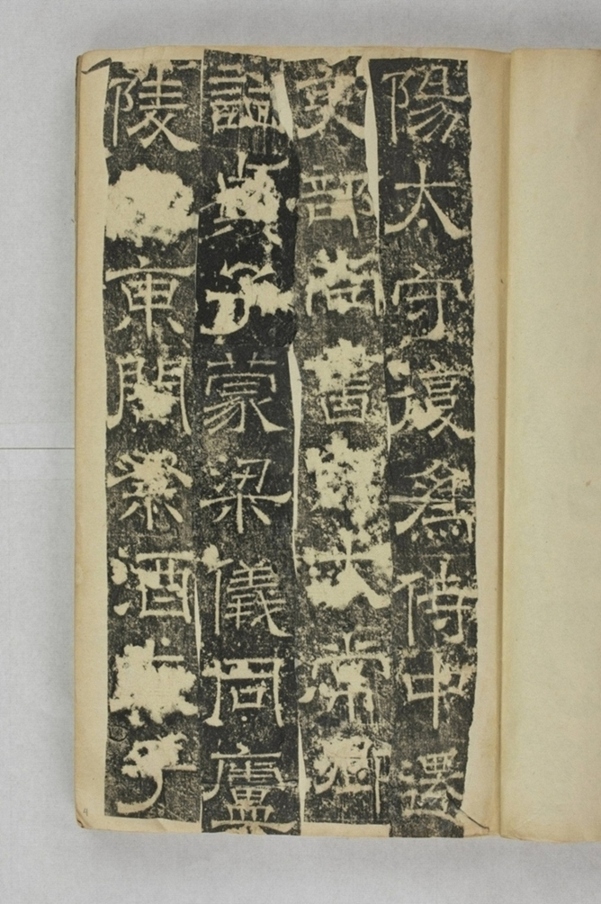 陽太守復爲侍中遷
吏部尚書大常卿
謚子蒙梁儀同廬
陵東閤祭酒子